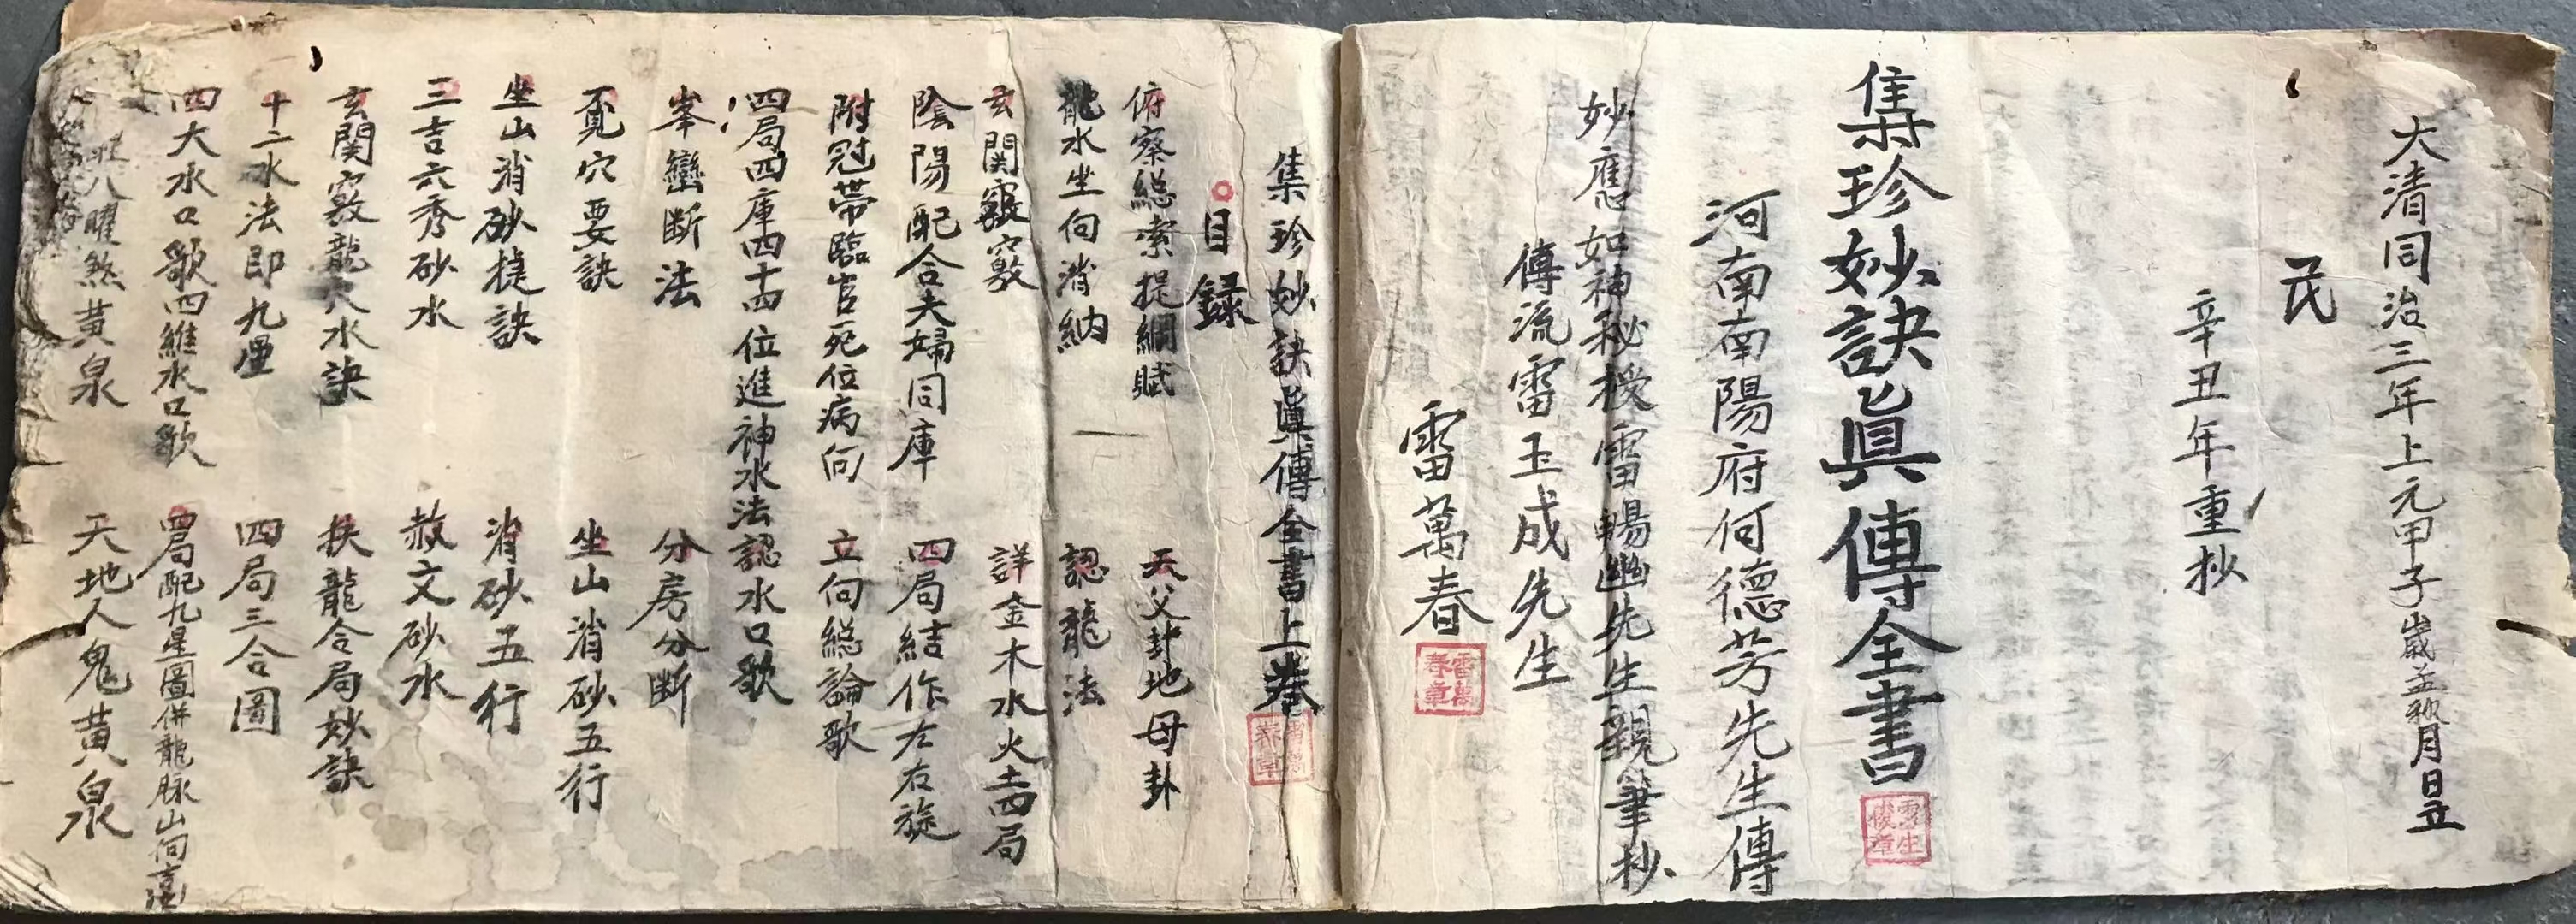 大清同治三年上元甲子歲孟秋月日立
民
辛丑年重抄
集珍妙訣眞傳全書
河南南陽府何德芳先生傳
妙應如神秘授雷暢幽先生親筆抄
傳流雷玉成先生
雷萬春
雷萬春章
集珍妙訣眞傳全書上卷
目録
俯察総索提綱賦 天父卦地母卦
龍水坐向消納 認龍法
玄関竅 詳金木水火土四局
陰陽配合夫婦同庫 四局結作左右旋
附冠帶臨官死位病向 立向総論歌
四局四庫四十四位進神水法認水口歌
峯巒斷法 分房分斷
覔穴要訣 坐山消砂五行
坐山消砂揵訣 消砂五行
三吉六秀砂水 赦文砂水
玄関竅龍穴水訣 扶龍合局妙訣
十二水法即九星 四局三合圖
四大水口歌四維水口歌 四局配九星圖併龍脉山向
八曜煞黃泉 天地人鬼黃泉